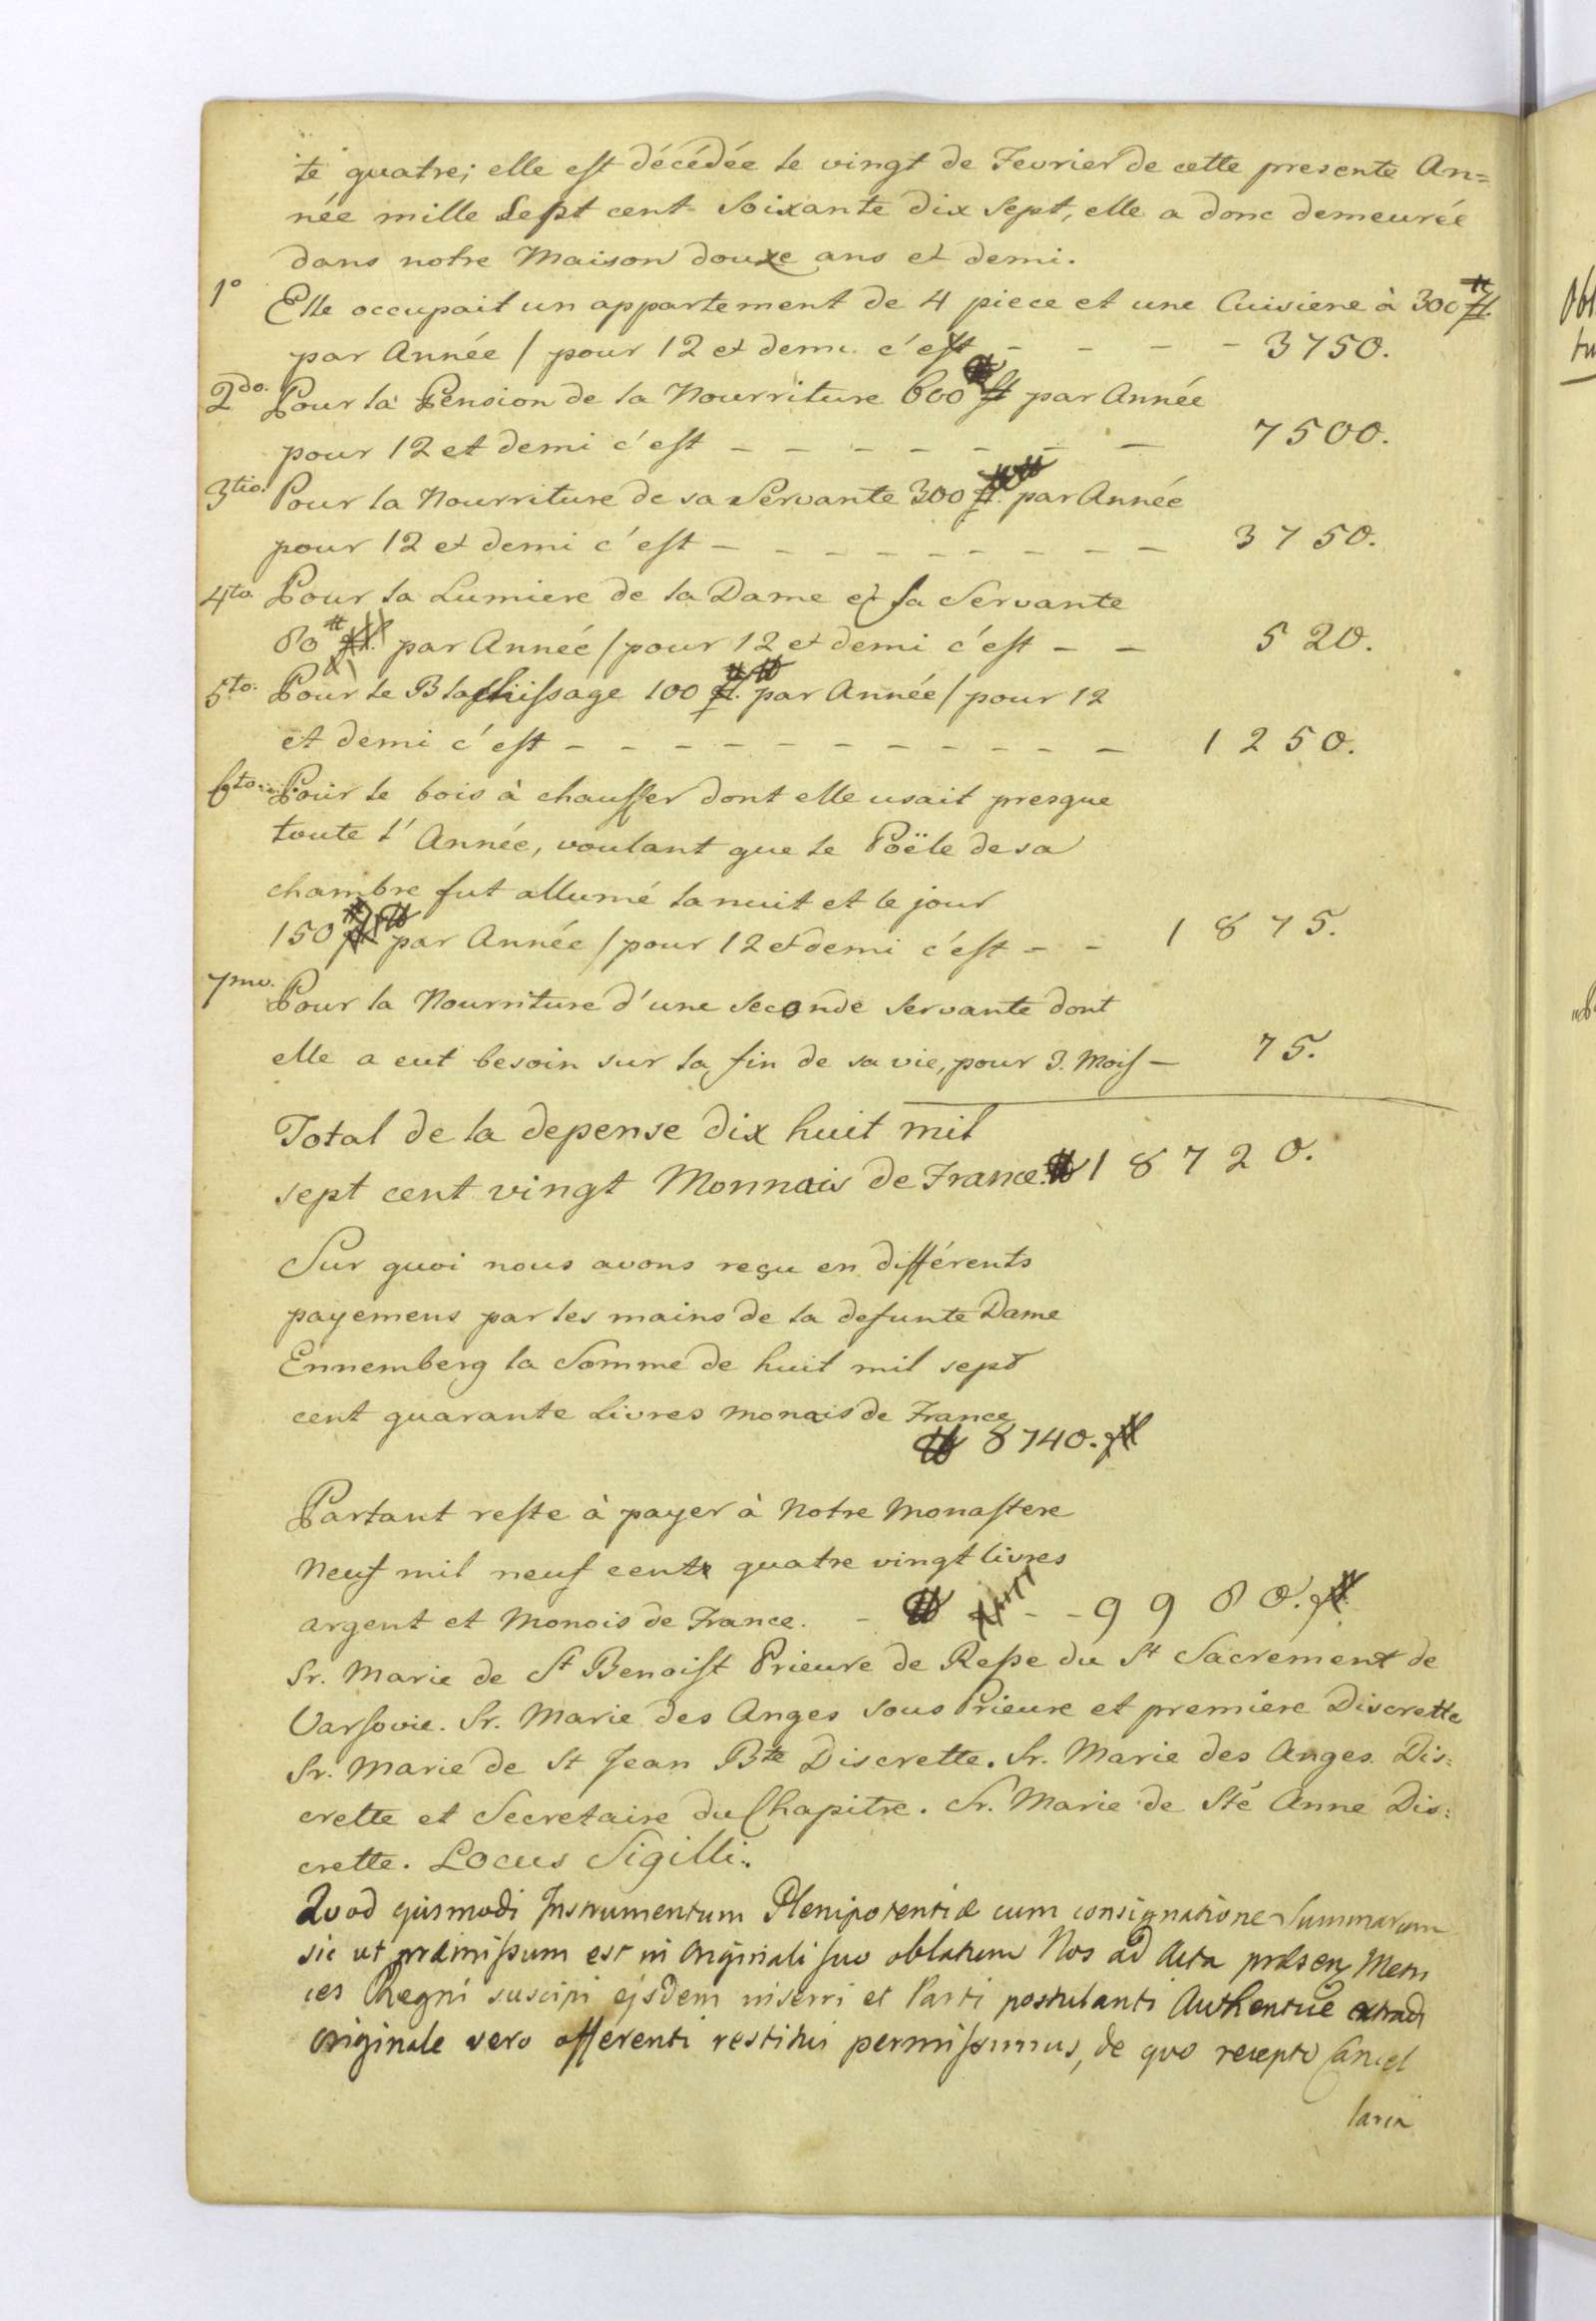 te quatre; elle est décédée le vingt de Fevrier de cette presente An=
née mille Sept cent Soixante dix Sept, elle a donc demeurée
dans notre Maison douze ans et demi.
1° Elle occupait un appartement de 4 piece et une Cuisiene à 300 #
par Année / pour 12 et demi c'est - - - - 3750.
2do. Pour la Pension de la Nourriture 600 # par Année
pour 12 et demi c'est - - - - - - - 7500.
3tio. Pour la Nourriture de sa Servante 300 # par Année
pour 12 et demi c'est - - - - - - - - - 3750.
4to. Pour la Lumiere de la Dame et sa Servante
80 # par Année / pour 12 et demi c'est - - 520.
5to. Pour le Blachissage 100 # par Année / pour 12
et demi c'est - - - - - - - - - - - 1250.
6to. Pour le bois à chauffer dont elle usait presque
toute l'Année, voulant que le Poële de sa
chambre fut allumé la nuit et le jour
150 # par Année / pour 12 et demi c'est - - 1875.
7mo. Pour la Nourriture d'une Seconde Servante dont
elle a eut besoin sur la fin de sa vie, pour 3. Mois - 75.
Total de la depense dix huit mil
sept cent vingt Monnais de France. # 18720.
Sur quoi nous avons reçu en différents
payemens par les mains de la defunte Dame
Ennemberg la Somme de huit mil sept
cent quarante Livres monais de France
# 8740.
Partant reste à payer à Notre Monastere
Neuf mil neuf cent quatre vingt livres
argent et Monois de France. - # - - 9980.
Sr. Marie de St Benoist Prieure de Resse du St Sacrement de
Varsovie. Sr. Marie des Anges Sous Prieure et premiere Discrette
Sr. Marie de St Jean Bte Discrette. Sr. Marie des Anges Dis=
crette et Secretaire du Chapitre. Sr. Marie de Sté Anne Dis=
crette. Locus Sigilli.
Quod ejusmodi Instrumentum Plenipotentiæ cum consignatione Summarum
sic ut præmissum est in Originali suo oblatum Nos ad Acta præsen Metri
ces Regni suscipi ejsdem inserri et Parti postulanti Authentice extradi
originale vero offerenti restitui permissimus, de quo recepto Cancel
laria